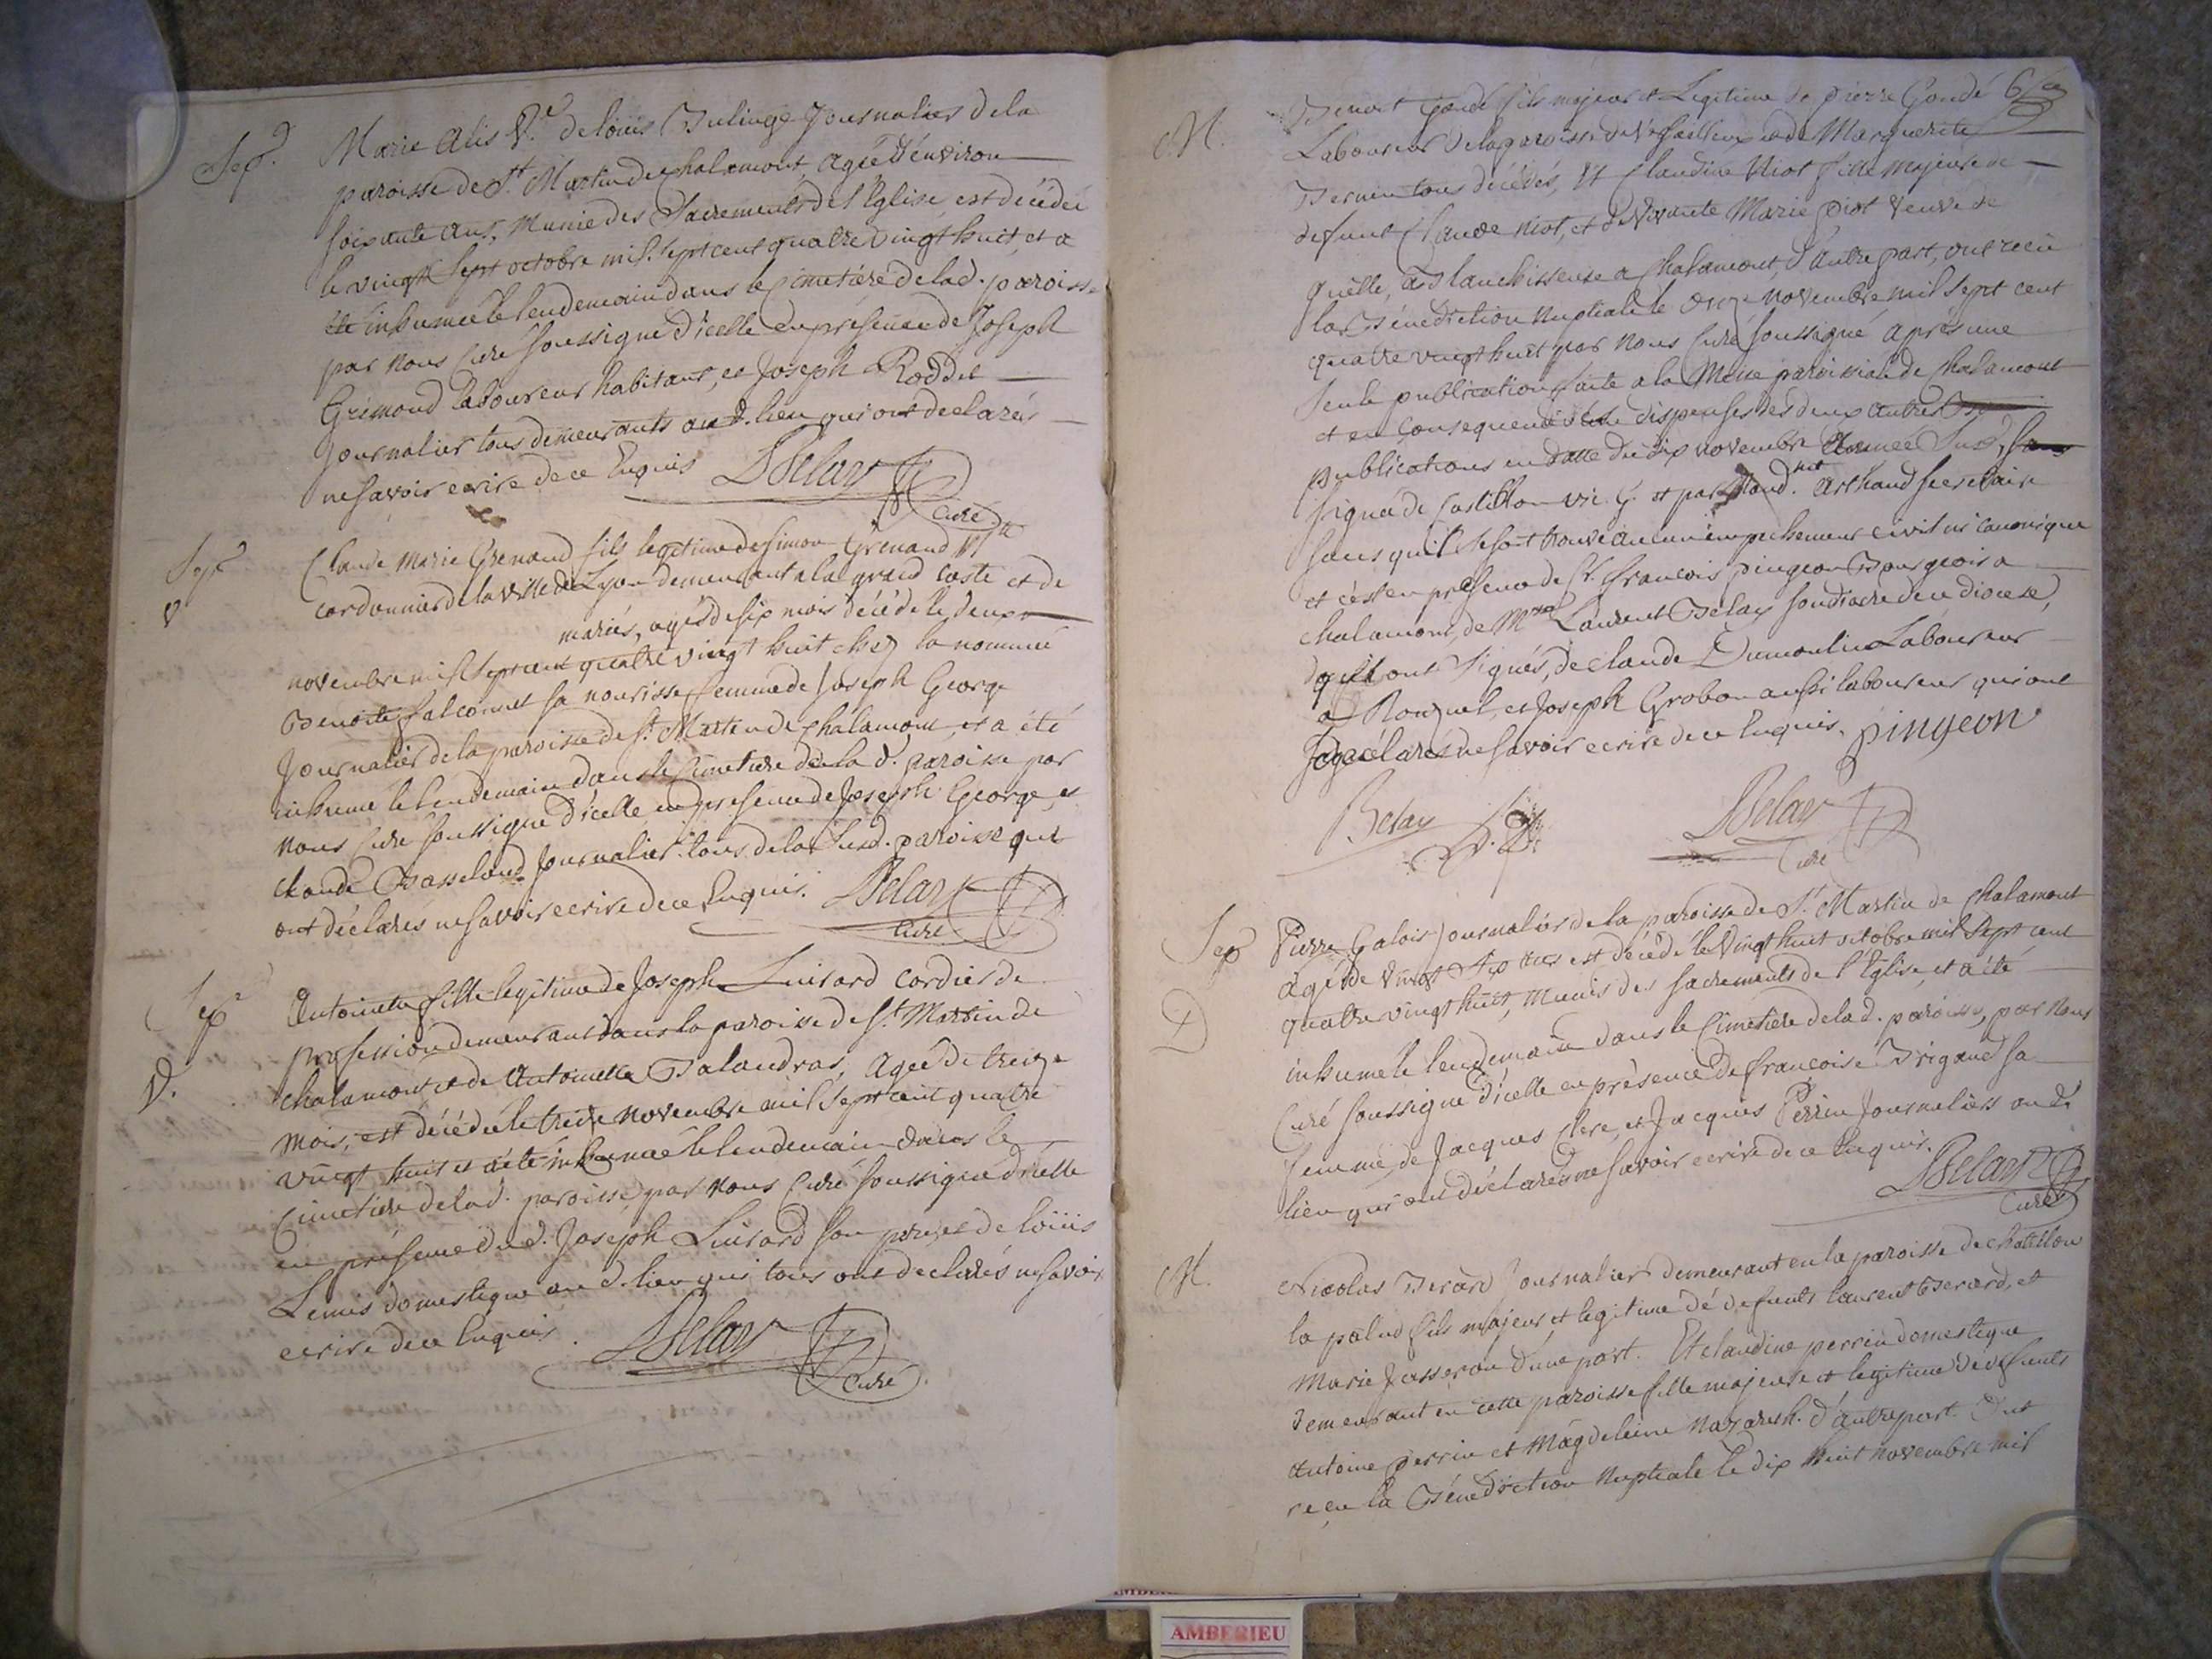 Sep.
Marie Alis Ve. de loüis Julinge Journalier de la
paroisse de St Martin de Chalamont, agée d'environ
soixante ans, Munie des Sacrements de l'Eglise est décédée
le vingt Sept octobre mil. sept cent quatre vingt huit, et a
été inhumée le lendemain dans le Cimetiere de lad. paroisse
par nous Curé soussigné d'icelle en présence de Joseph
Grimond laboureur habitant, et Joseph Roddet
Journalier tous demeurants aud. lieu qui ont declarés
ne savoir ecrire de ce Enquis Belay
Curé
Sep
V
Claude Marie Grenand fils legitime de Simon Grenand Mtre
cordonnier de la ville de Lyon demeurant a la grand Coste et de
mariés, agés de six mois décédé le deux
novembre mil sept cent quatre vingt huit chez la nommée
Benoite falconnet sa nourisse femme de Joseph George
Journalier de la paroisse de St. Martin de Chalamont, et a été
inhumé le lendemain dans le Cimetiere de la d. paroisse par
nous Curé soussigné d'icelle en présence de Joseph George, et
Claude Basseland Journalier tous de la susd. paroisse qui
ont déclarés ne savoir ecrire de ce Enquis. Belay
Curé
Sep
V.
Antoinette fille legitime de Joseph Luisard cordier de
profession demeurant dans la paroisse de St. Martin de
Chalamont et de Antoinette Palandras, agée de treize
mois, est décédée le treize novembre mil sept cent quatre
vingt huit et a été inhumée le lendemain dans le
Cimetiere de lad. paroisse, par nous Curé soussigné d'icelle
en présence dud. Joseph Luisard son pere, et de loüis
Lemis domestique aud. lieu qui tous ont declarés ne savoir
ecrire de ce Enquis. Belay
Curé
M.
Benoit Gondé fils majeur et Legitime de pierre Gondé 6
Laboureur de la paroisse de Versailleux et de Marguerite
Bernin tous décédés, Et Claudine Niot fille majeure de
defunt Claude Niot, et de vivante Marie piot veuve de
quelle, Blanchisseuse a Chalamont, d'autre part, ont recü
la Bénédiction nuptiale le onze novembre mil sept cent
quatre vingt huit par nous Curé soussigné après une
seule publication faite a la Messe paroissiale de Chalamont
et en consequence des dispenses des deux autres
publications en datte du dix novembre Année Susd.
signé de Castillon vic. G. et par Mandnt. Arthaud secretaire
sans qu'il se soit trouvé aucun empechement civil ni canonique
et c'est en présence de Sr. francois pingeon Bourgeois a
Chalamont, de Mre Laurent Belay soudiacre de ce diocese,
qui ont signés, de claude Dumoulin Laboureur
a Ronzuel, et Joseph Grobon aussi laboureur qui ont
declarés ne savoir ecrire de ce Enquis. pingeon
Belay Belay
Curé
Sep
D
Pierre Galois Journalier de la paroisse de St. Martin de Chalamont
agé de vingt six ans est décédé le vingt huit octobre mil sept cent
quatre vingt huit, munis des sacrements de l'Eglise, et a été
inhumé le lendemain dans le Cimetiere de lad. paroisse, par nous
Curé soussigné d'icelle en présence de francoise Brigand sa
femme, de Jacques clere, et Jacques Perrin Journaliers aud.
lieu qui ont déclarés ne savoir ecrire de ce Enquis. Belay
Curé
M.
Nicolas Berard Journalier demeurant en la paroisse de chatillon
la palud fils majeur et legitime dé defunts laurent Berard, et
Marie Jasseron d'une part. Et claudine perrin domestique
demeurant en cette paroisse fille majeure et legitime de defunts
Antoine perrin et Magdeleine Nazareth. d'autre part. ont
recu la Bénédiction Nuptiale le dix huit novembre mil
AMBERIEU